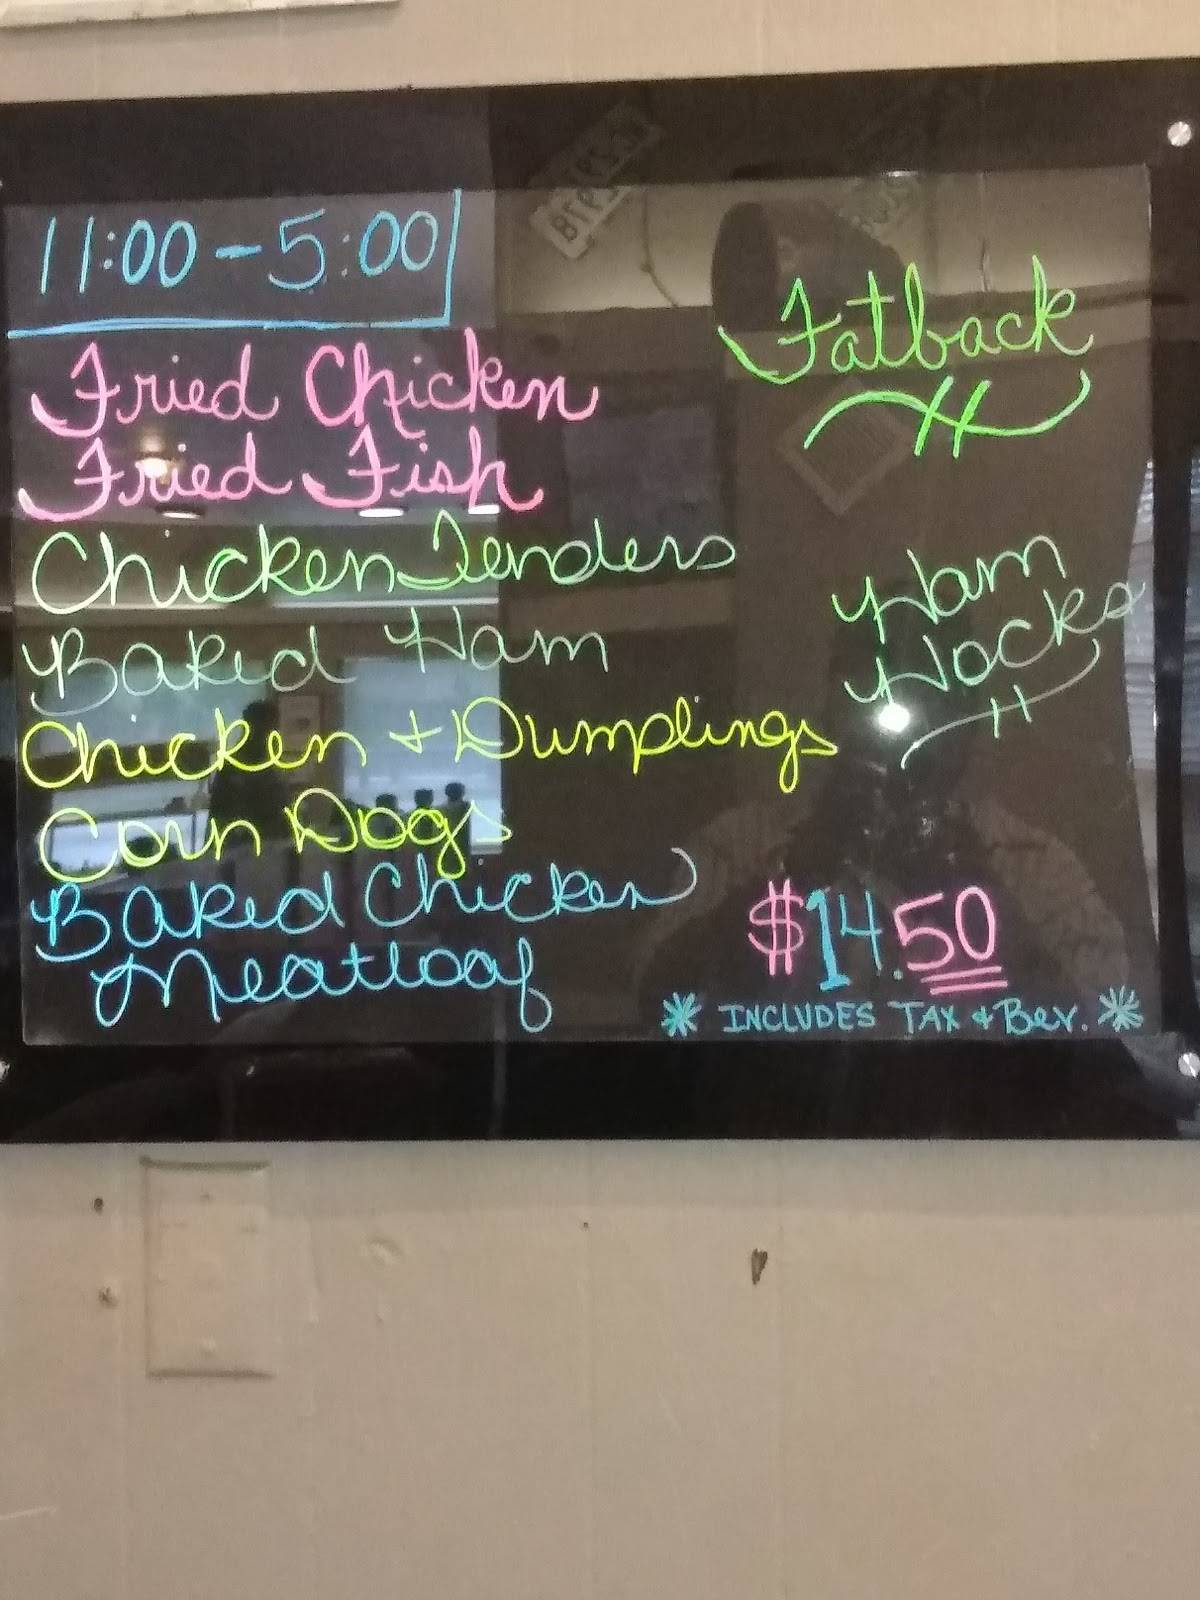 11:00 - 5:00
Fried Chicken
Fried Fish
Chicken Tenders
Baked Ham
Chicken + Dumplings
Corn Dogs
Baked Chicken
Meatloaf
Fatback
Ham
Hocks
$14.50
* INCLUDES TAX + Bev. *